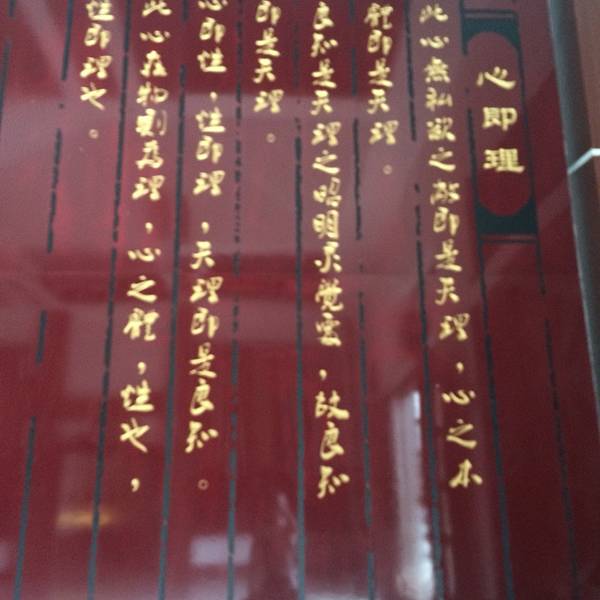 心即理
此心無私欲之蔽即是天理，心之本
體即是天理。
良知是天理之昭明灵覺處，故良知
即是天理。
心即性，性即理，天理即是良知。
此心在物則為理，心之體，性也，
性即理也。